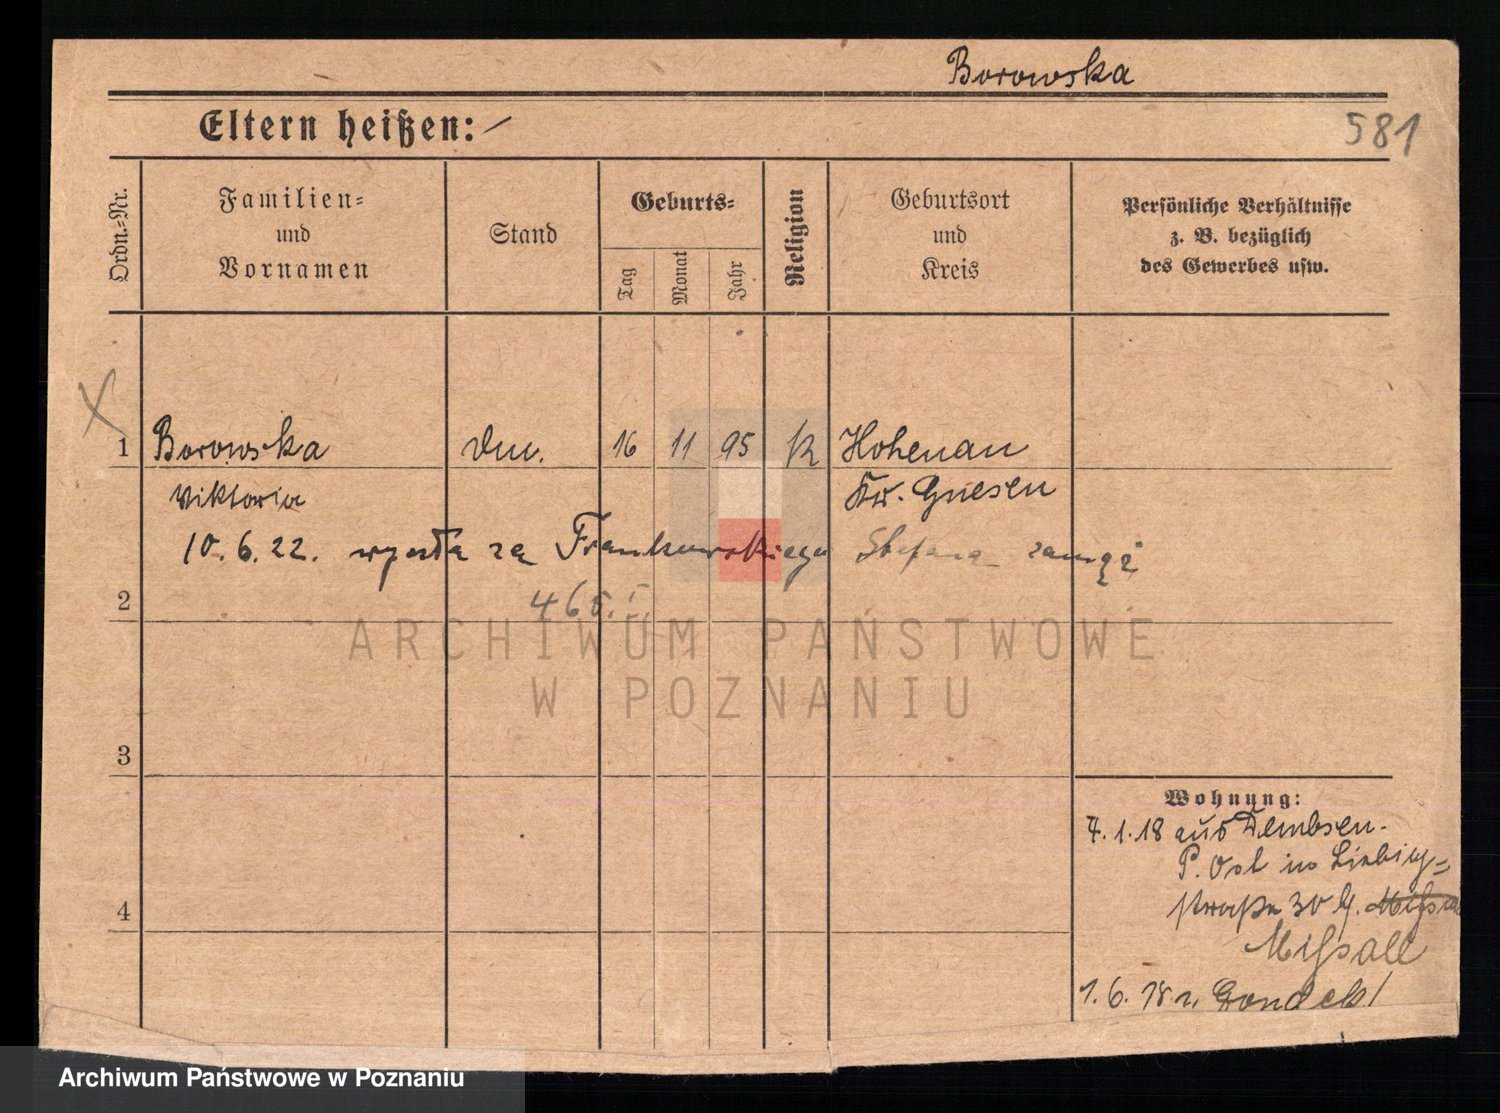 Borowska
581
Eltern heißen: —
Ordn.-Nr.
Familien-
und
Vornamen
Stand
Geburts-
Tag
Monat
Jahr
Religion
Geburtsort
und
Kreis
Persönliche Verhältnisse
z. B. bezüglich
des Gewerbes usw.
X
1 Borowska 16 11 95 K Hohenau
Viktoria Kr. Gnesen
10.6.22. wyszła za Frankowskiego Stefana zamąż
2
465.
ARCHIWUM PAŃSTWOWE
W POZNANIU
3
Wohnung:
7.1.18 aus Dembsen.
P. Ost in Liebig=
straße 30 b.
Mißall
1.6.18 Gondek
4
Archiwum Państwowe w Poznaniu